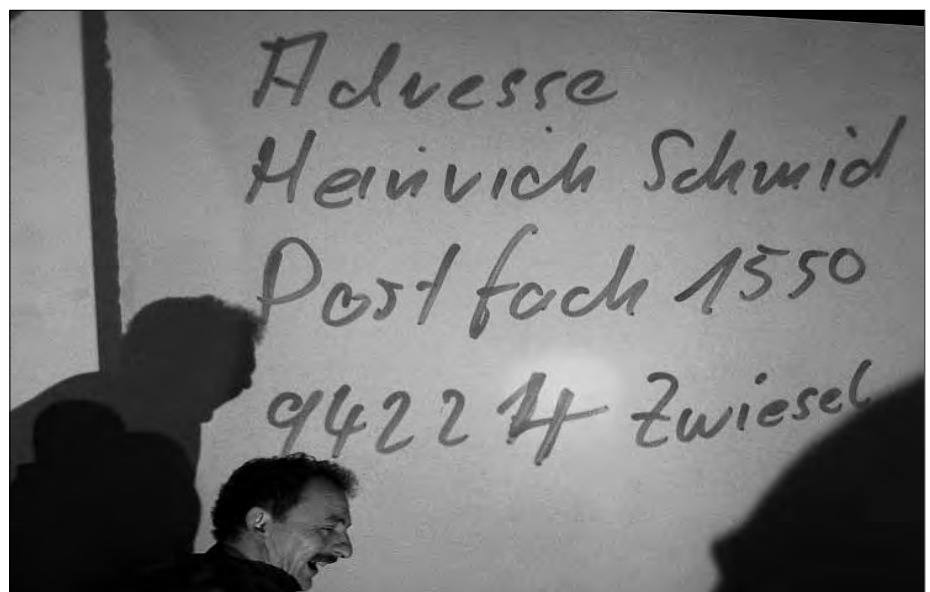 Adresse
Heinrich Schmid
Postfach 1550
94224 Zwiesel